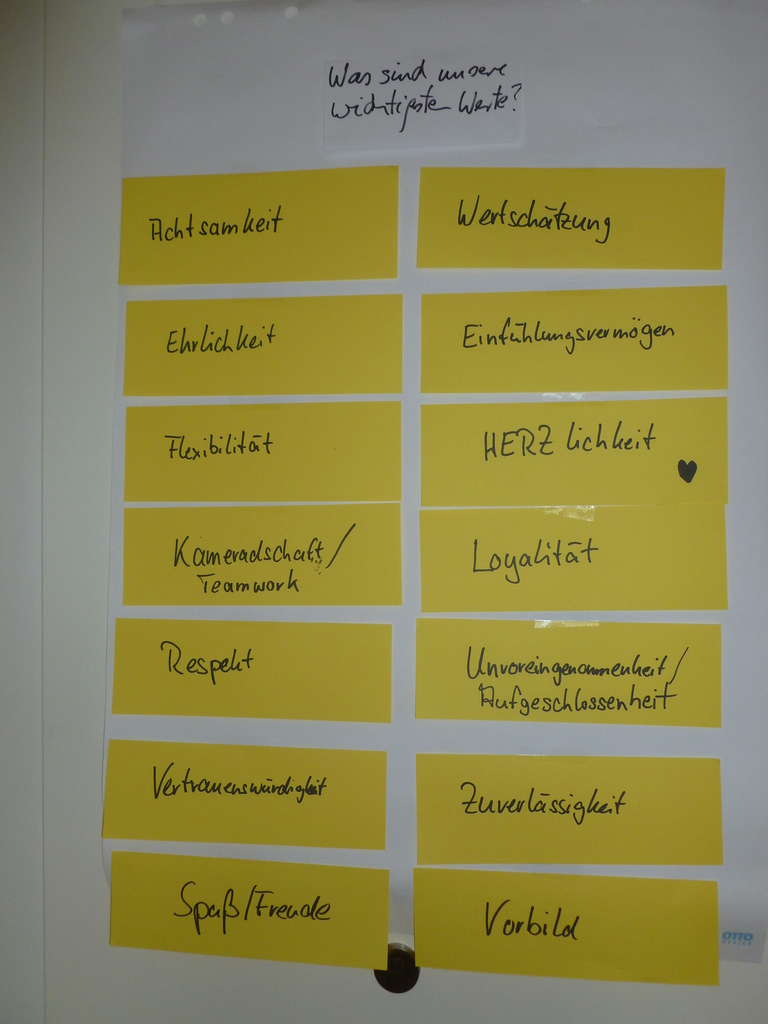 Was sind unsere
wichtigsten Werte?
Achtsamkeit
Wertschätzung
Ehrlichkeit
Einfühlungsvermögen
Flexibilität
HERZlichkeit
Kameradschaft/
Teamwork
Loyalität
Respekt
Unvoreingenommenheit/
Aufgeschlossenheit
Vertrauenswürdigkeit
Zuverlässigkeit
Spaß/Freude
Vorbild
OTTO